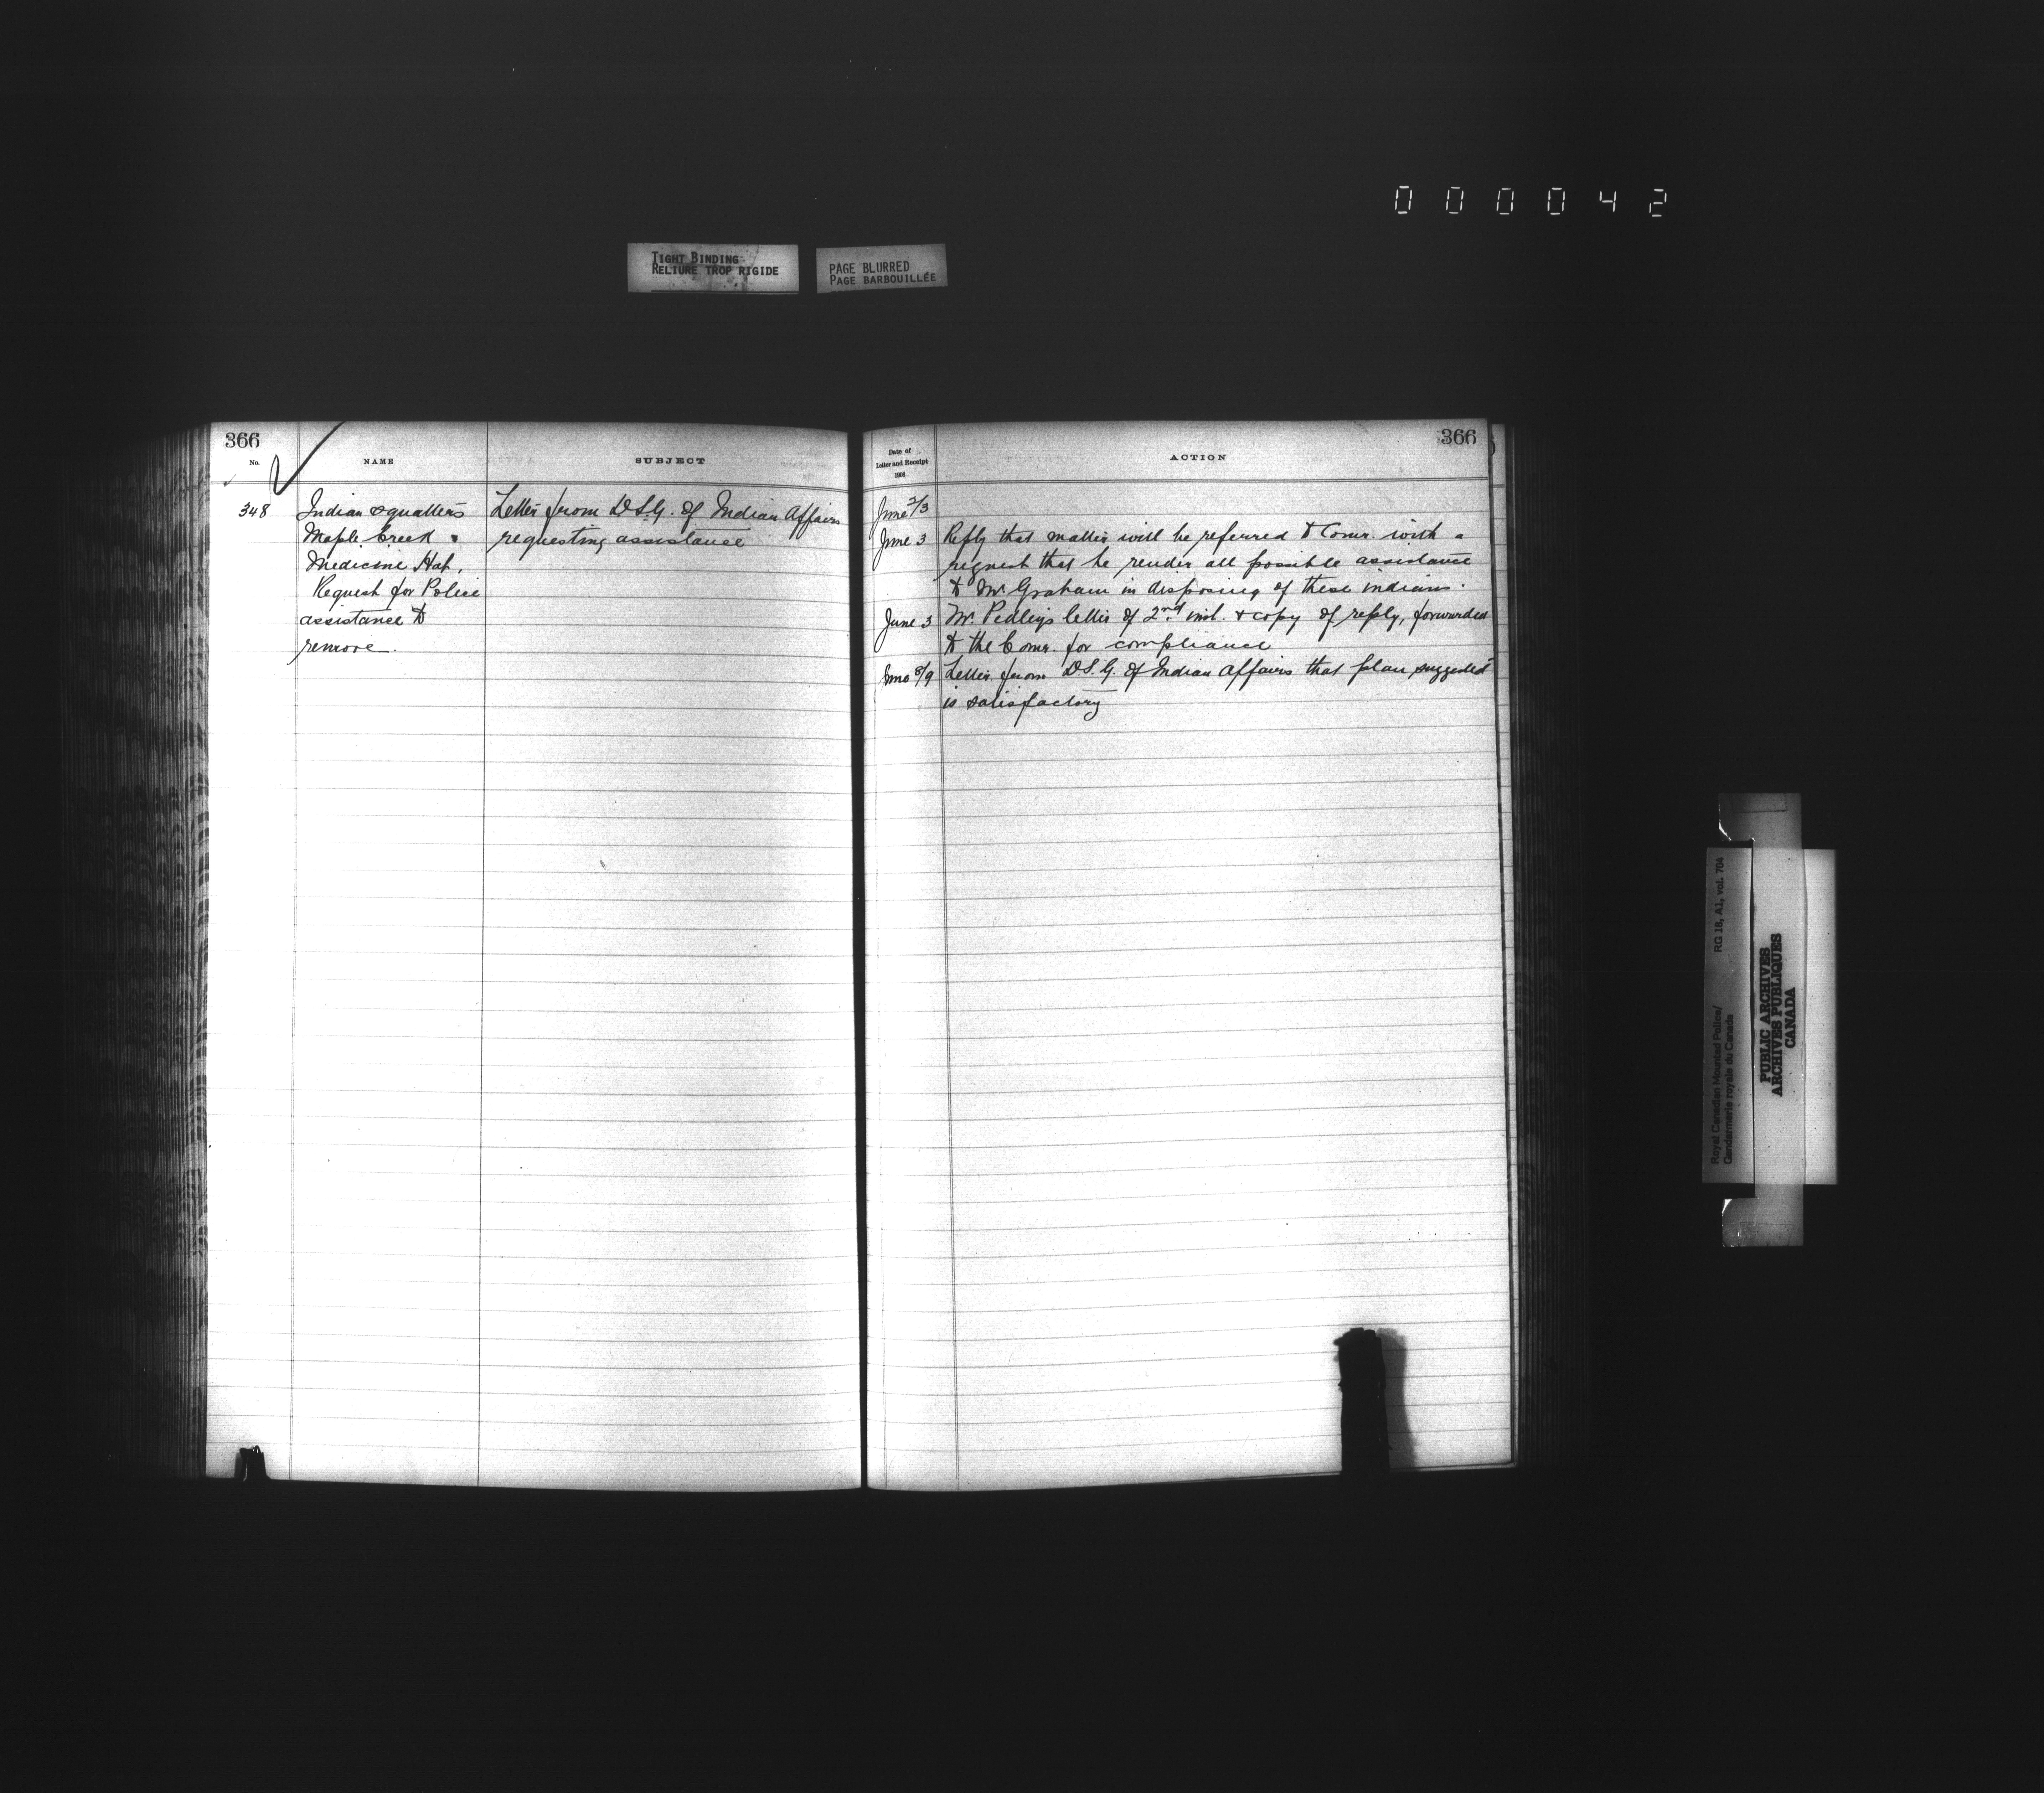 000042
TIGHT BINDING
RELIURE TROP RIGIDE
PAGE BLURRED
PAGE BARBOUILLÉE
366
No.
NAME
SUBJECT
348
Indian Squatters
Maple Creek &
Medicine Hat.
Request for Police
assistance to
remove.
Letter from D.S.G. of Indian Affairs
requesting assistance
366
Date of
Letter and Receipt
1906
ACTION
June 2/3
June 3 Reply that matter will be referred to Comr. with a
request that he render all possible assistance
to Mr Graham in disposing of these indians.
June 3 Mr. Pedley's letter of 2nd inst. & copy of reply, forwarded
to the Comr. for compliance
June 8/9 Letter from D.S.G. of Indian Affairs that plan suggested
is satisfactory
Royal Canadian Mounted Police/
Gendarmerie royale du Canada
RG 18, A1, vol. 704
PUBLIC ARCHIVES
ARCHIVES PUBLIQUES
CANADA